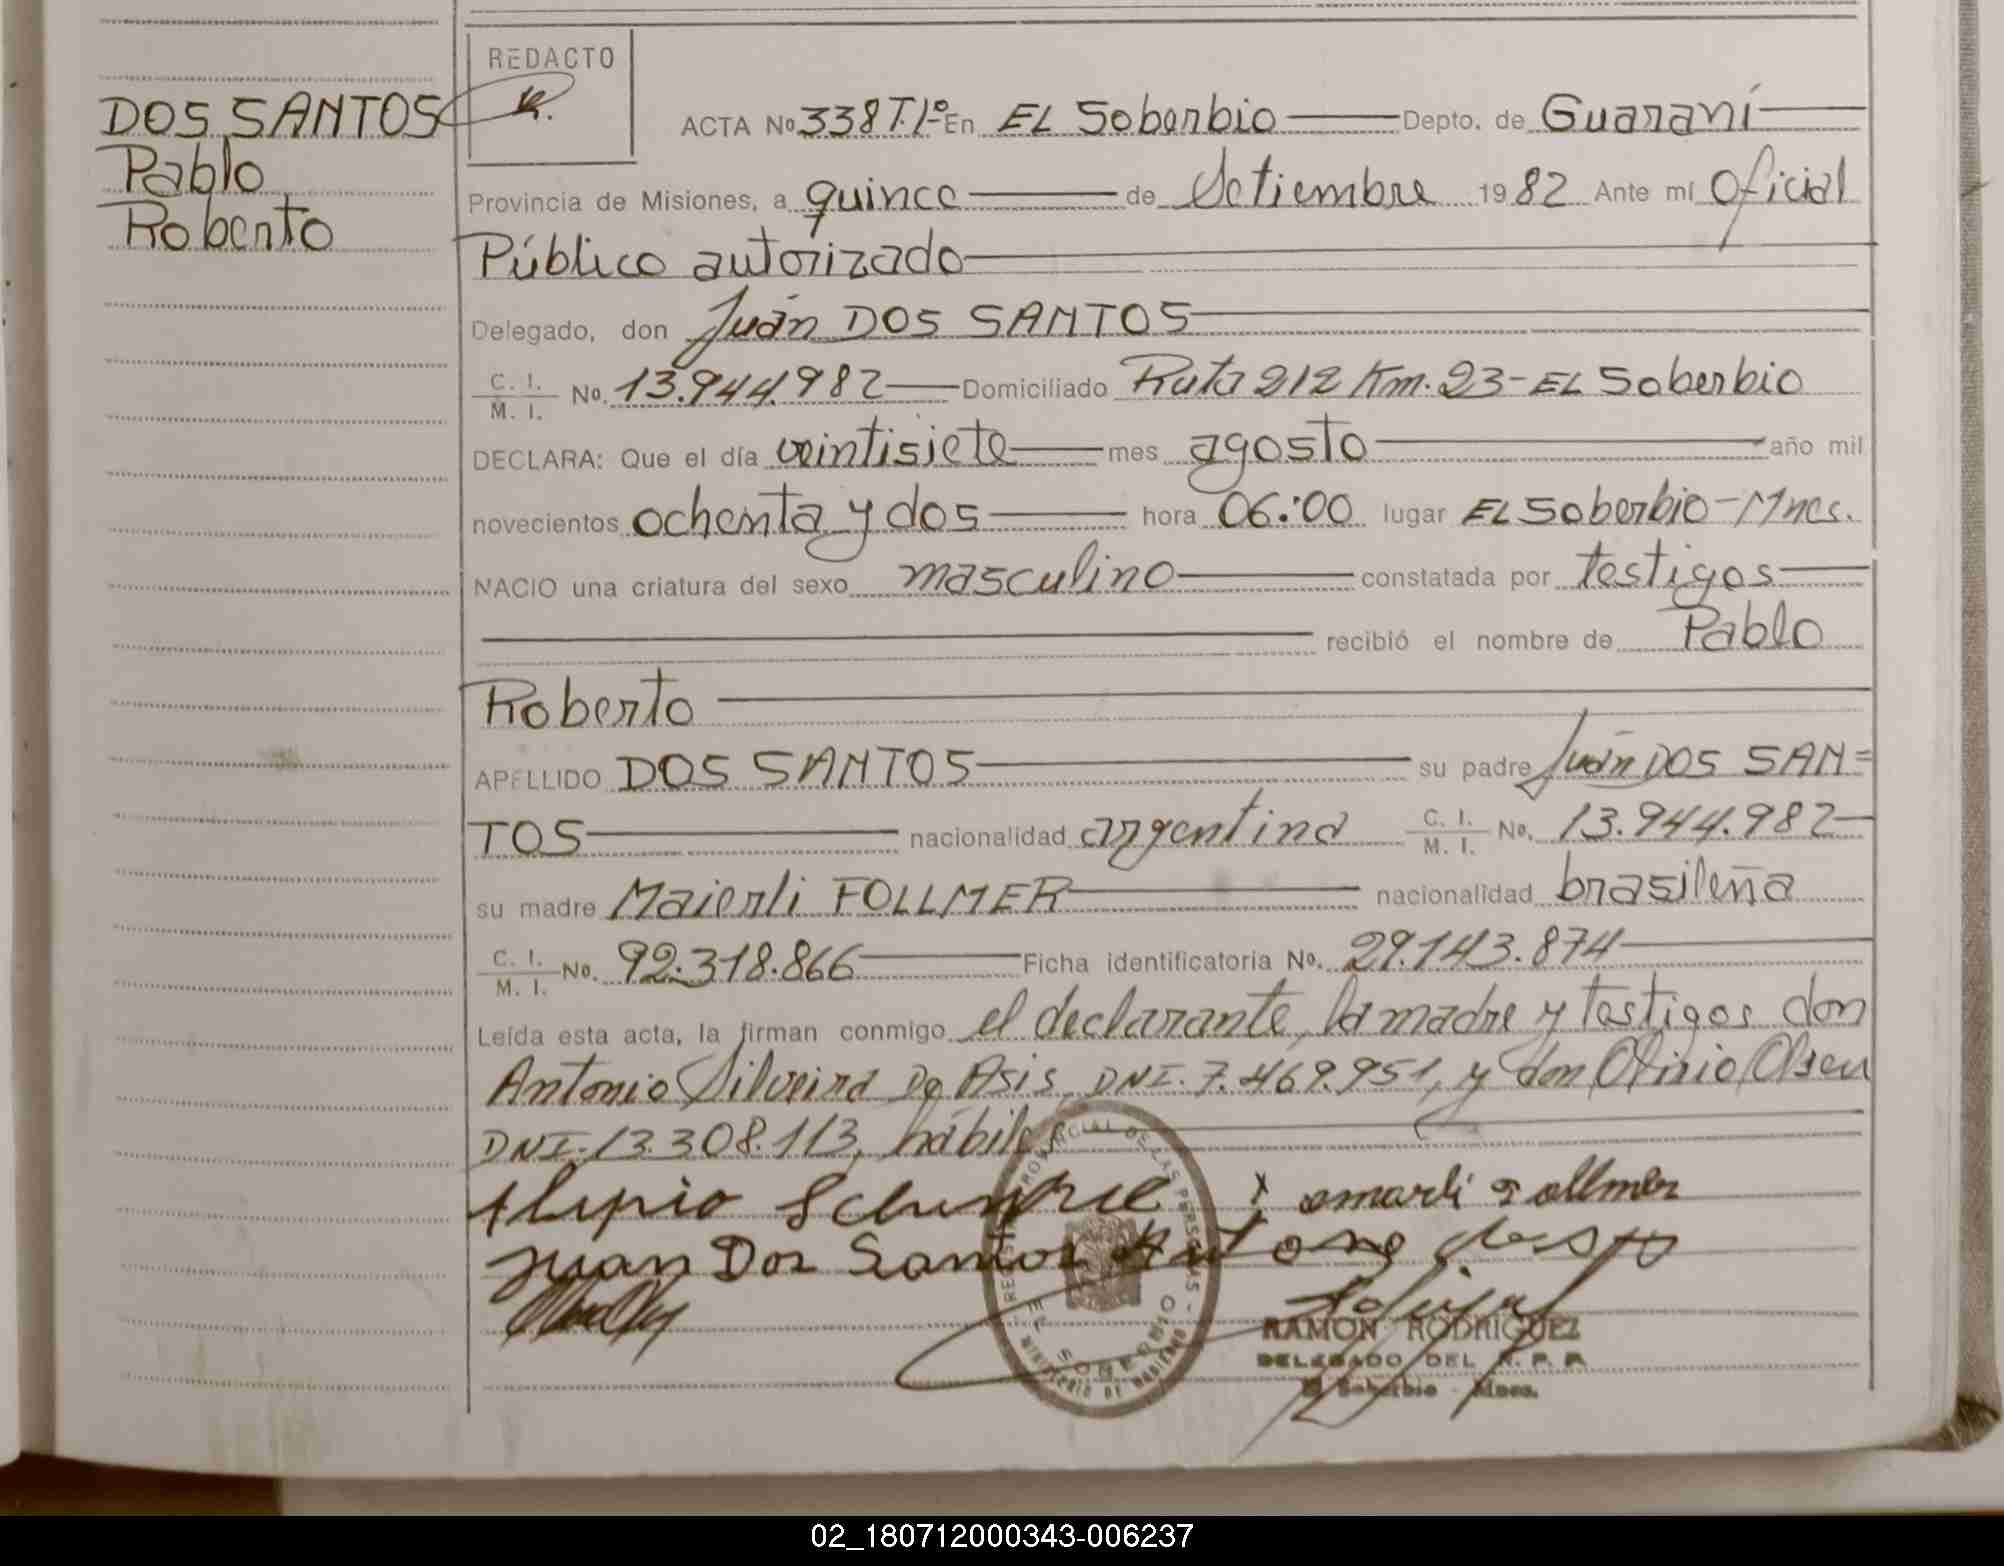 REDACTO
DOS SANTOS
Pablo
Roberto
ACTA No 338 T.1º En EL Soberbio Depto. de Guaraní
Provincia de Misiones, a quince de Setiembre 1982 Ante mí Oficial
Público autorizado
Delegado, don Juán DOS SANTOS
C. I. M. I. No. 13.944.982 Domiciliado Ruta 212 Km. 23-EL Soberbio
DECLARA: Que el día veintisiete mes agosto año mil
novecientos ochenta y dos hora 06:00 lugar EL Soberbio-Mnes.
NACIO una criatura del sexo masculino constatada por testigos
recibió el nombre de Pablo
Roberto
APELLIDO DOS SANTOS su padre Juán DOS SAN=
TOS nacionalidad argentina C. I. M. I. No. 13.944.982
su madre Maierli FOLLMER nacionalidad brasileña
C. I. M. I. No. 92.318.866 Ficha identificatoria No. 29.143.874
Leída esta acta, la firman conmigo el declarante, la madre y testigos don
Antonio Silveira De Asis, DNI. 7.469.951, y don Olirio Olseu
DNI-13.308.113, hábiles
Juan Dos Santos
RAMON RODRIGUEZ
DELEGADO DEL R. P. P.
El Soberbio - Mnes.
02_180712000343-006237